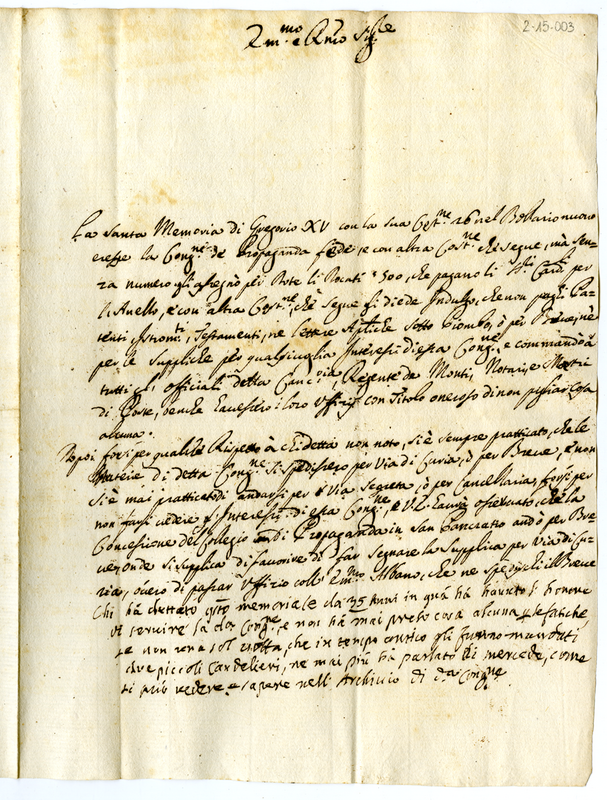 2-15-003
Em.mo e Rmo Sig.re
La Santa Memoria di Gregorio XV con la sua Cost.ne 26 nel Bollario nuovo
eresse la Cong.ne de Propaganda fede, e con altra Cost.ne che segue, mà sen-
za numero gli assegnò per Dote li Ducati 500, che pagano li Card. per
l'Anello, e con altra Cost.ne, che segue gli diede Indulto, che non paghi Pa-
tenti, Istrom.ti, Testamenti, ne lettere Apliche sotto Piombo, ò per Breve, nè
per le suppliche per qualsivoglia Interesse di essa Cong.ne e commandò à
tutti gl' officiali della Canc.ria, Regente da Monti, Notari, e Mastri
di Poste, benche havessero i loro Uffizij con Titolo oneroso di non pigliar cosa
alcuna.
Dopoi forsi per qualche Rispetto à chi detta non noto, si è sempre pratticato, che le
Materie di detta Cong.ne si spedissero per Via di Curia, ò per Breve, e non
si è mai pratticato di andarsi per Via Segreta, ò per Cancellaria, forsi per
non farsi vedere gl'Interessi di essa Cong.ne, e V.E. haverà osservato, che la
Concessione del Collegio di Propaganda in San Pancratio andò per Bre-
ve, onde si supplica di favorire di far segnare la supplica per Via di Cu-
ria, ò vero di passar Uffizio coll' Em.mo Albano, che ne spedischi il Breve
Chi hà dettato q.sto memoriale da 35 Anni in quà hà havuto l'honore
di servire la da Cong.ne, e non hà mai preteso cosa alcuna p. le fatiche,
se non una sol volta, che in tempo antico gli furono mandati
due piccoli Candelieri, ne mai più hà parlato di mercede, come
si può vedere, e sapere nell' Archivio di d.a Cong.ne